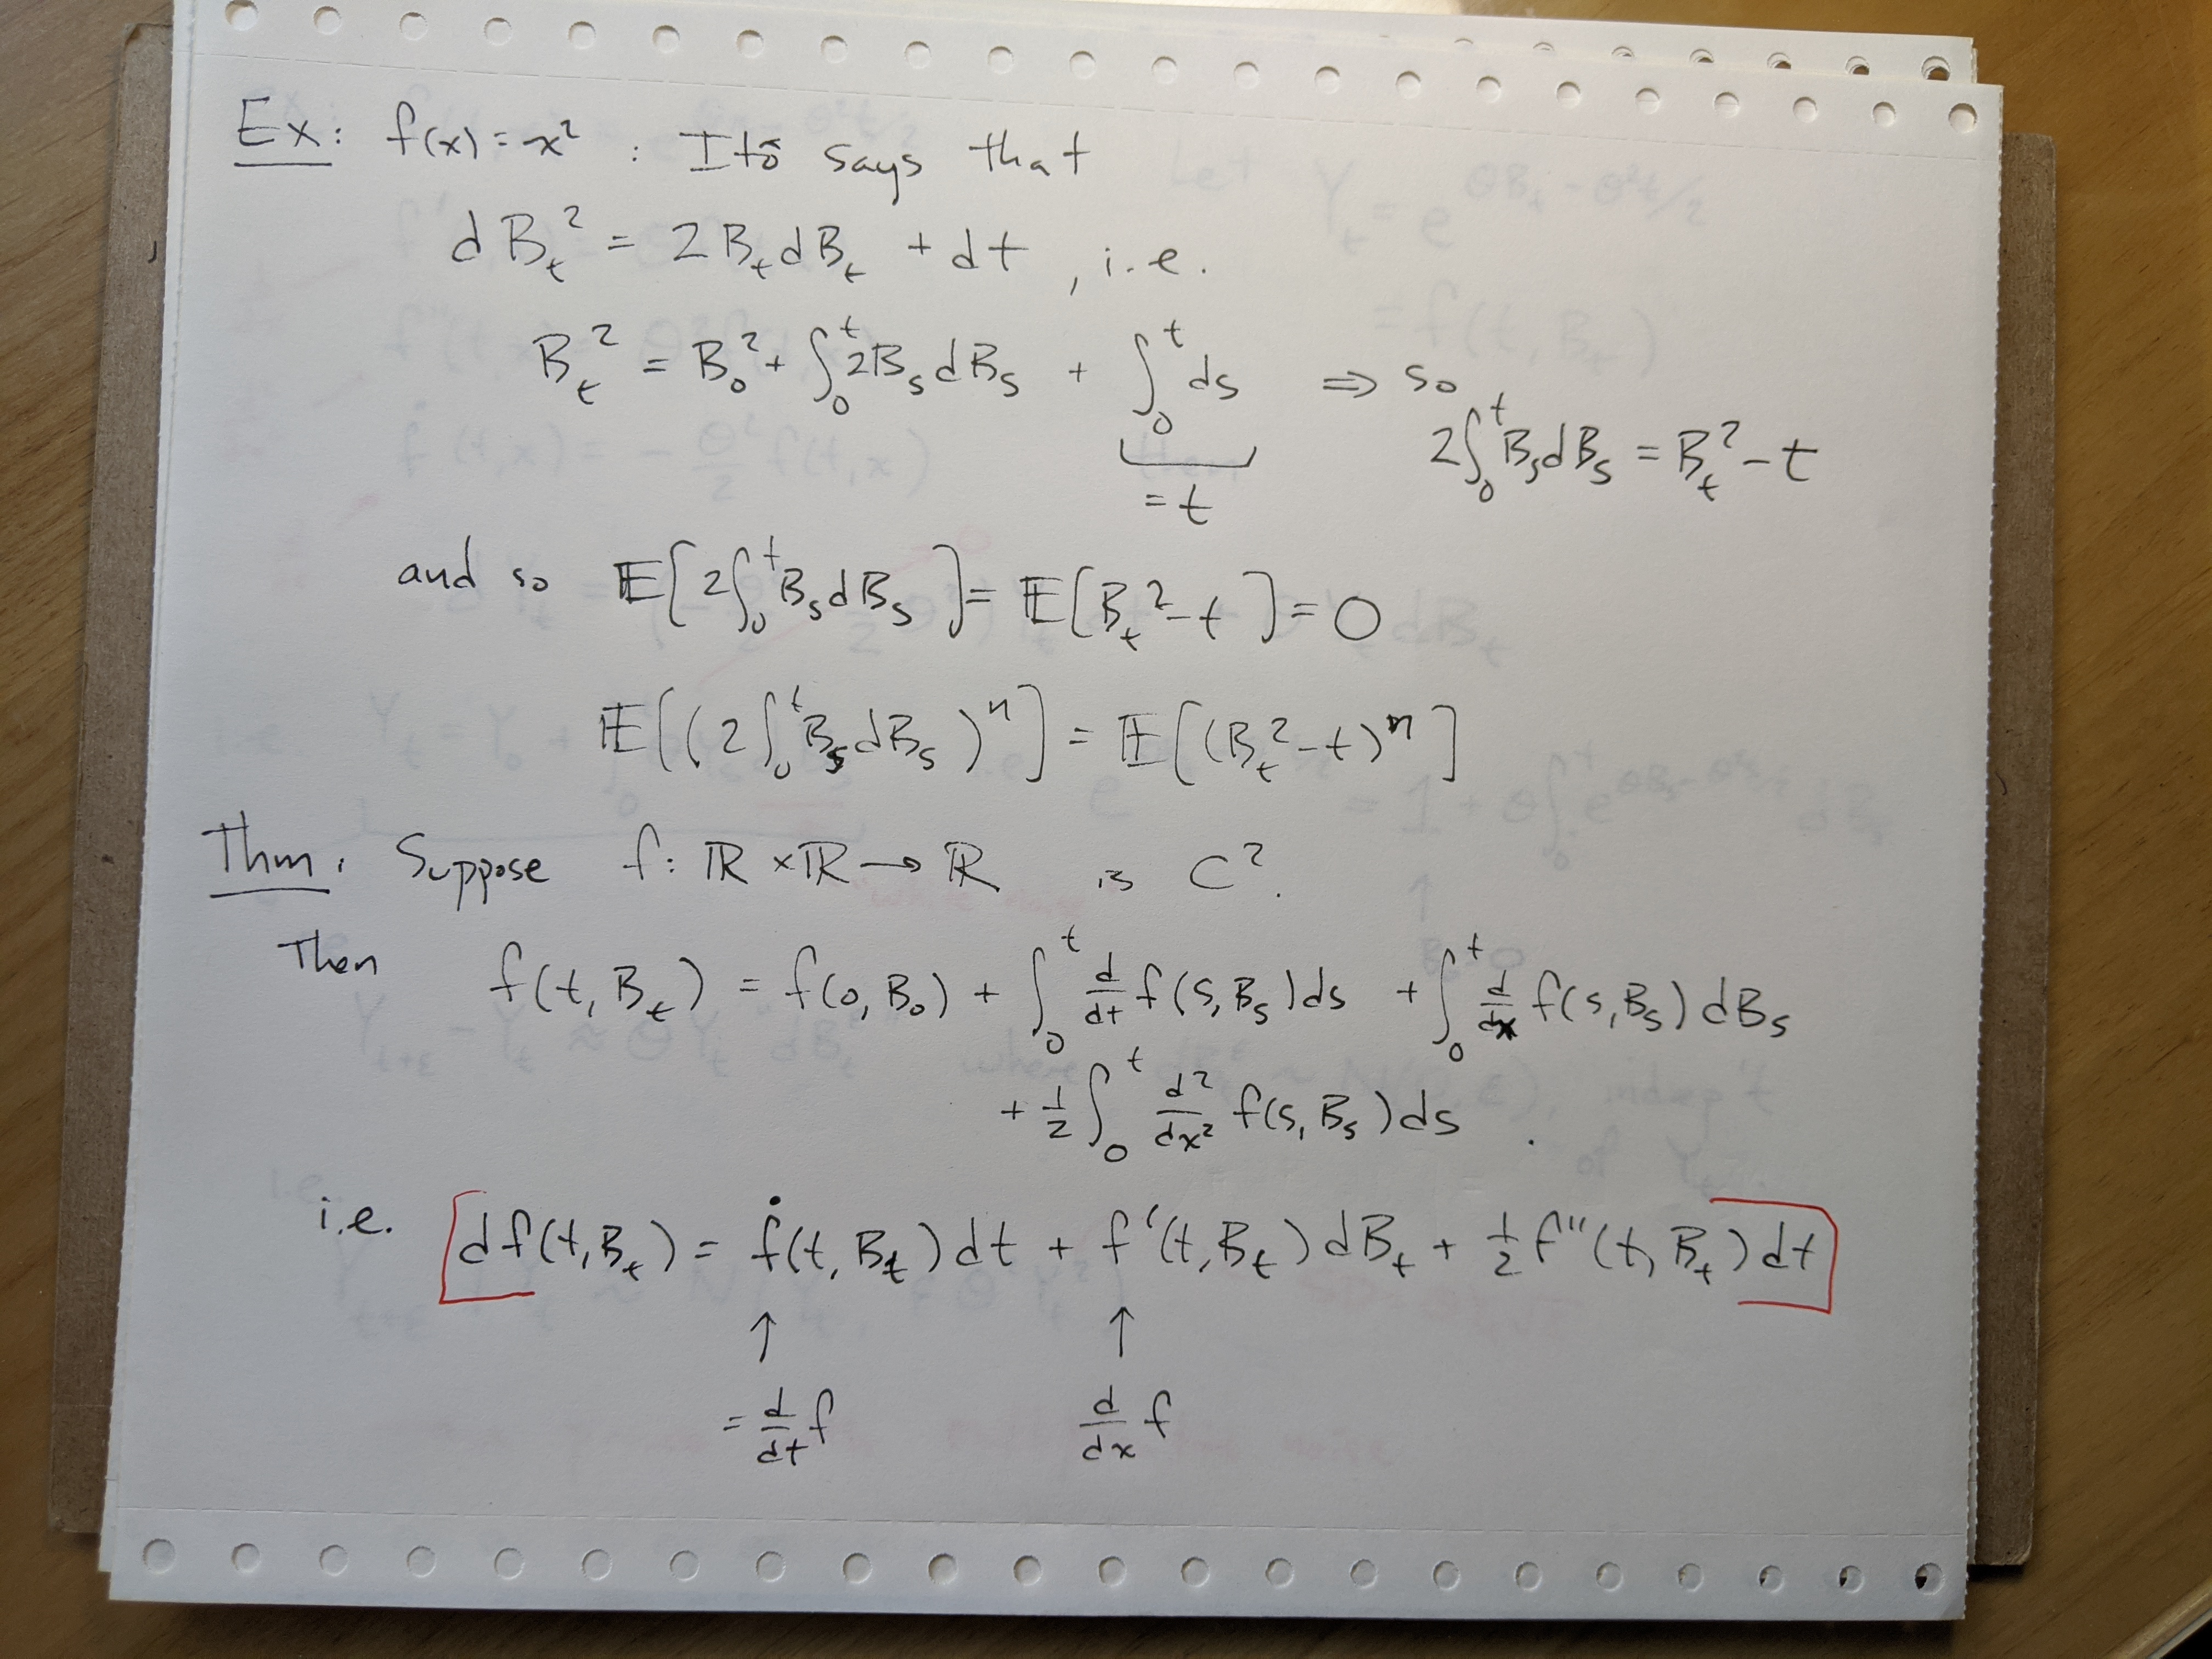 Ex: f(x) = x² : Itō says that
d B_t² = 2 B_t d B_t + dt , i.e.
B_t² = B_0² + ∫_0^t 2 B_s dB_s + ∫_0^t ds ⇒ so
= t
2∫_0^t B_s dB_s = B_t² - t
and so 𝔼[2∫_0^t B_s dB_s] = 𝔼[B_t² - t] = 0
𝔼[(2∫_0^t B_s dB_s)ⁿ] = 𝔼[(B_t² - t)ⁿ]
Thm: Suppose f: ℝ × ℝ → ℝ is C².
Then f(t, B_t) = f(0, B_0) + ∫_0^t d/dt f(s, B_s) ds + ∫_0^t d/dx f(s, B_s) dB_s
+ 1/2 ∫_0^t d²/dx² f(s, B_s) ds .
i.e. [df(t, B_t) = ḟ(t, B_t) dt + f'(t, B_t) dB_t + 1/2 f''(t, B_t) dt]
↑ ↑
= d/dt f d/dx f